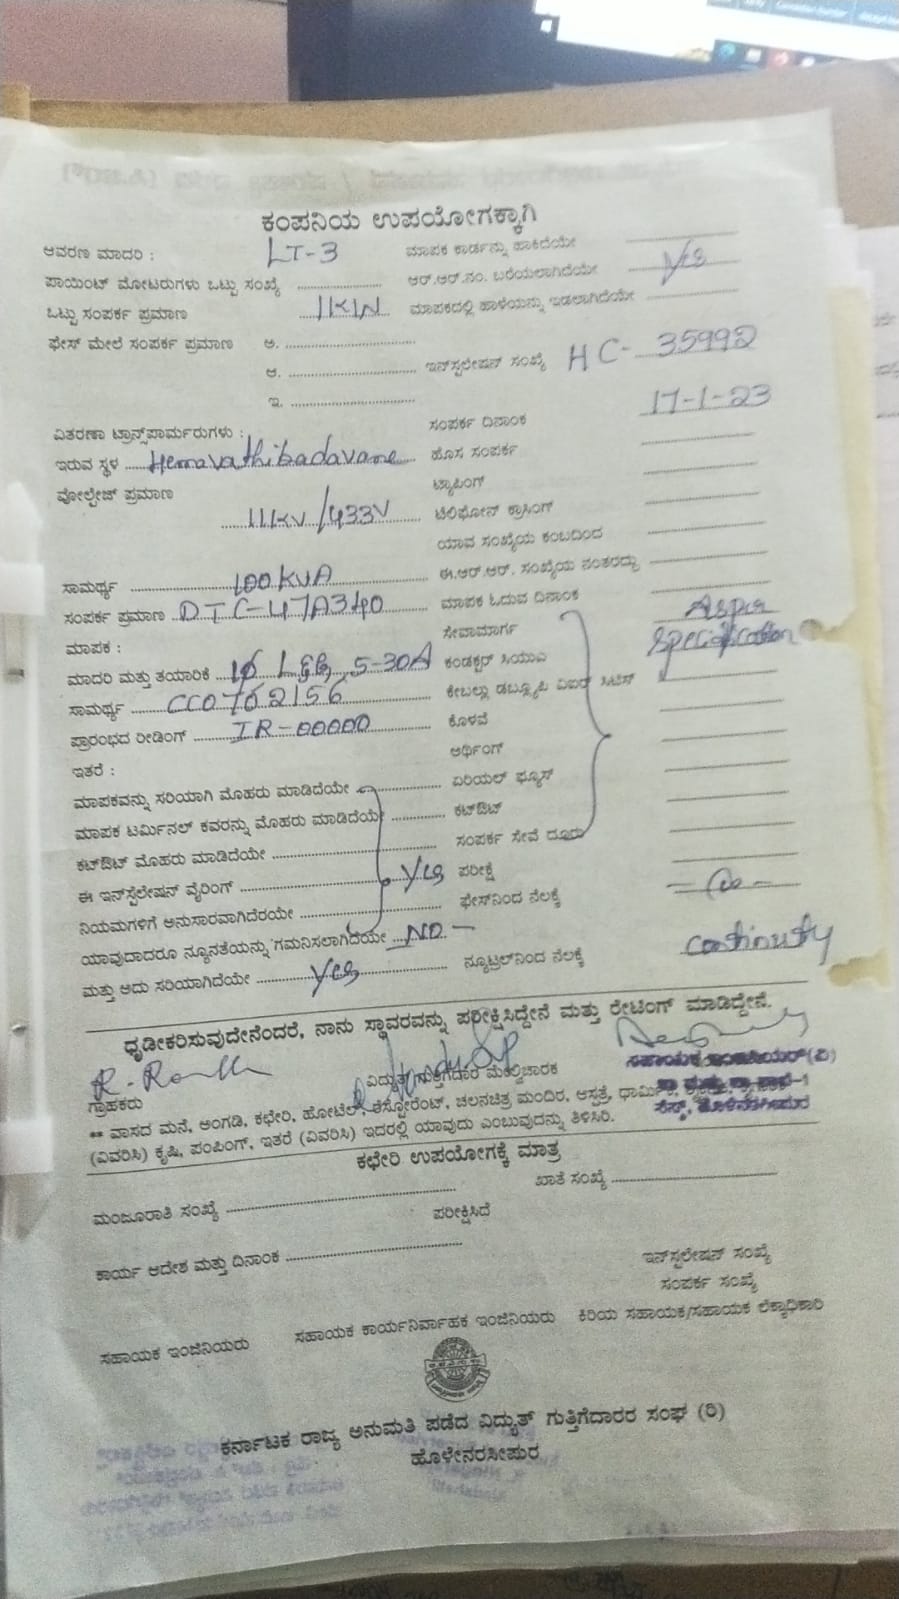 ಕಂಪನಿಯ ಉಪಯೋಗಕ್ಕಾಗಿ
ಆವರಣ ಮಾದರಿ : LT-3 ಮಾಪಕ ಕಾರ್ಡನ್ನು ಹಾಕಿದೆಯೇ
ಪಾಯಿಂಟ್ ಮೋಟರುಗಳು ಒಟ್ಟು ಸಂಖ್ಯೆ ಆರ್.ಆರ್.ನಂ. ಬರೆಯಲಾಗಿದೆಯೇ Yes
ಒಟ್ಟು ಸಂಪರ್ಕ ಪ್ರಮಾಣ 1KW ಮಾಪಕದಲ್ಲಿ ಹಾಳೆಯನ್ನು ಇಡಲಾಗಿದೆಯೇ
ಫೇಸ್ ಮೇಲೆ ಸಂಪರ್ಕ ಪ್ರಮಾಣ ಅ.
ಆ. ಇನ್‌ಸ್ಟಲೇಷನ್ ಸಂಖ್ಯೆ HC- 35992
ಇ.
ಸಂಪರ್ಕ ದಿನಾಂಕ 17-1-23
ವಿತರಣಾ ಟ್ರಾನ್ಸ್‌ಫಾರ್ಮರುಗಳು :
ಇರುವ ಸ್ಥಳ Hemavathibadavane ಹೊಸ ಸಂಪರ್ಕ
ವೋಲ್ಟೇಜ್ ಪ್ರಮಾಣ ಟ್ಯಾಪಿಂಗ್
11KV/433V ಟೆಲಿಫೋನ್ ಕ್ರಾಸಿಂಗ್
ಯಾವ ಸಂಖ್ಯೆಯ ಕಂಬದಿಂದ
ಸಾಮರ್ಥ್ಯ 100KVA ಈ.ಆರ್.ಆರ್. ಸಂಖ್ಯೆಯ ನಂತರದ್ದು
ಸಂಪರ್ಕ ಪ್ರಮಾಣ DTC-47A340 ಮಾಪಕ ಓದುವ ದಿನಾಂಕ As per
ಮಾಪಕ : ಸೇವಾಮಾರ್ಗ Specification
ಮಾದರಿ ಮತ್ತು ತಯಾರಿಕೆ 1ϕ L&G, 5-30A ಕಂಡಕ್ಟರ್ ಸಿಯುಎ
ಸಾಮರ್ಥ್ಯ CC0762156 ಕೇಬಲ್ಲು ಡಬ್ಲ್ಯೂಪಿ
ಪ್ರಾರಂಭದ ರೀಡಿಂಗ್ IR-00000 ಕೊಳವೆ
ಇತರೆ : ಅರ್ಥಿಂಗ್
ಮಾಪಕವನ್ನು ಸರಿಯಾಗಿ ಮೊಹರು ಮಾಡಿದೆಯೇ ಏರಿಯಲ್ ಫ್ಯೂಸ್
ಮಾಪಕ ಟರ್ಮಿನಲ್ ಕವರನ್ನು ಮೊಹರು ಮಾಡಿದೆಯೇ ಕಟ್‌ಔಟ್
ಕಟ್‌ಔಟ್ ಮೊಹರು ಮಾಡಿದೆಯೇ ಸಂಪರ್ಕ ಸೇವೆ ದೂರು
ಈ ಇನ್‌ಸ್ಟೆಲೇಷನ್ ವೈರಿಂಗ್ Yes ಪರೀಕ್ಷೆ
ನಿಯಮಗಳಿಗೆ ಅನುಸಾರವಾಗಿದೆರಯೇ ಫೇಸ್‌ನಿಂದ ನೆಲಕ್ಕೆ
ಯಾವುದಾದರೂ ನ್ಯೂನತೆಯನ್ನು ಗಮನಿಸಲಾಗಿದೆಯೇ NO -
ಮತ್ತು ಅದು ಸರಿಯಾಗಿದೆಯೇ Yes ನ್ಯೂಟ್ರಲ್‌ನಿಂದ ನೆಲಕ್ಕೆ continuty
ಧೃಡೀಕರಿಸುವುದೇನೆಂದರೆ, ನಾನು ಸ್ಥಾವರವನ್ನು ಪರೀಕ್ಷಿಸಿದ್ದೇನೆ ಮತ್ತು ರೇಟಿಂಗ್ ಮಾಡಿದ್ದೇನೆ.
ಗ್ರಾಹಕರು ವಿದ್ಯುತ್ ಗುತ್ತಿಗೆದಾರ ಮೇಲ್ವಿಚಾರಕ ಸಹಾಯಕ ಇಂಜಿನಿಯರ್(ವಿ)
ಸೆಸ್ಕ್, ಹೊಳೆನರಸೀಪುರ
** ವಾಸದ ಮನೆ, ಅಂಗಡಿ, ಕಛೇರಿ, ಹೋಟೆಲ್, ರೆಸ್ಟೋರೆಂಟ್, ಚಲನಚಿತ್ರ ಮಂದಿರ, ಆಸ್ಪತ್ರೆ,
(ವಿವರಿಸಿ) ಕೃಷಿ, ಪಂಪಿಂಗ್, ಇತರೆ (ವಿವರಿಸಿ) ಇದರಲ್ಲಿ ಯಾವುದು ಎಂಬುವುದನ್ನು ತಿಳಿಸಿರಿ.
ಕಛೇರಿ ಉಪಯೋಗಕ್ಕೆ ಮಾತ್ರ
ಮಂಜೂರಾತಿ ಸಂಖ್ಯೆ ಖಾತೆ ಸಂಖ್ಯೆ
ಪರೀಕ್ಷಿಸಿದೆ
ಕಾರ್ಯ ಆದೇಶ ಮತ್ತು ದಿನಾಂಕ ಇನ್‌ಸ್ಟಲೇಷನ್ ಸಂಖ್ಯೆ
ಸಂಪರ್ಕ ಸಂಖ್ಯೆ
ಸಹಾಯಕ ಇಂಜಿನಿಯರು ಸಹಾಯಕ ಕಾರ್ಯನಿರ್ವಾಹಕ ಇಂಜಿನಿಯರು ಕಿರಿಯ ಸಹಾಯಕ/ಸಹಾಯಕ ಲೆಕ್ಕಾಧಿಕಾರಿ
ಕರ್ನಾಟಕ ರಾಜ್ಯ ಅನುಮತಿ ಪಡೆದ ವಿದ್ಯುತ್ ಗುತ್ತಿಗೆದಾರರ ಸಂಘ (ರಿ)
ಹೊಳೇನರಸೀಪುರ